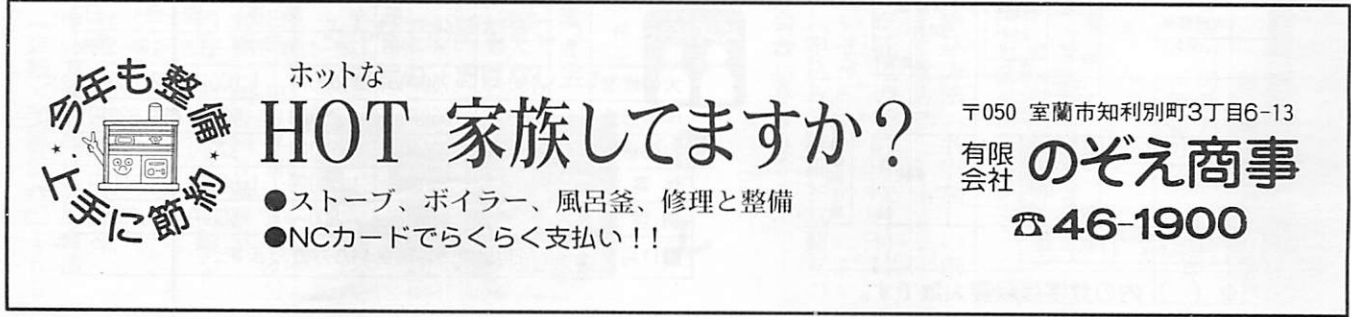 今年も整備
上手に節約
ホットな
HOT 家族してますか？
●ストーブ、ボイラー、風呂釜、修理と整備
●NCカードでらくらく支払い!!
〒050 室蘭市知利別町3丁目6-13
有限会社 のぞえ商事
☎46-1900